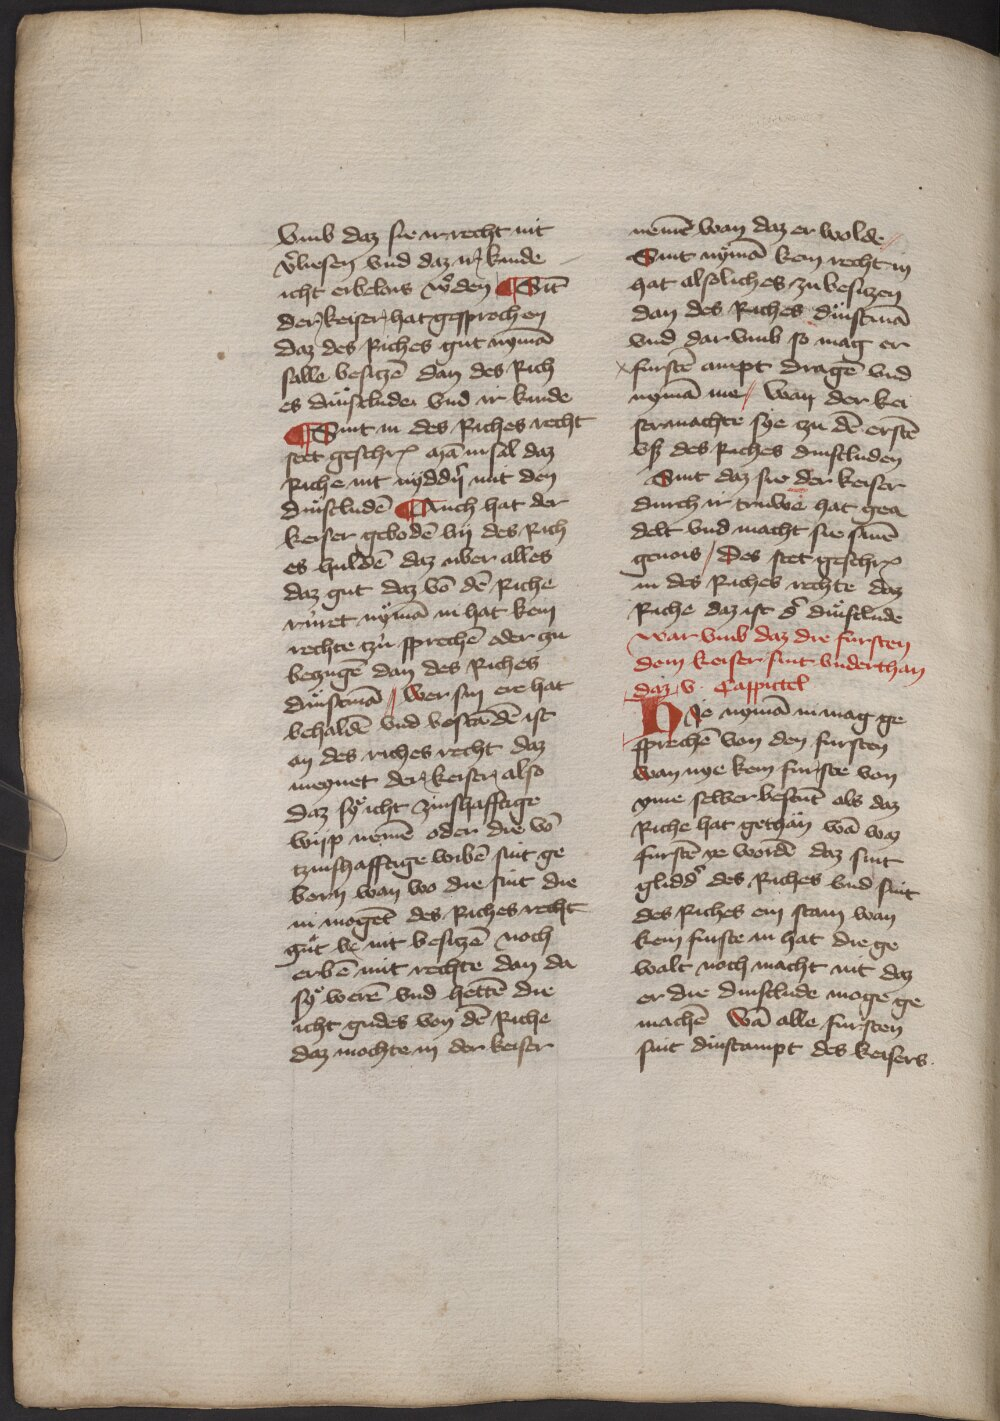 vmb daz sie ir recht nit
v̾liesen vnd daz ir kinde
icht erbelois w̾den ¶ Sit
der keiser hat gesprochen
daz des Riches gut nymā
salle besiczē dan des Rich
es dinstlude vnd ir kinde
¶ Sint in des Riches recht
stet geschrꝭ mā in sal daz
Riche nit nydd̾n mit den
dinstludē ¶ Auch hat der
keiser gebodē bij des Rich
es huldē daz uber alles
daz gut daz vō dē Riche
ruret nymā in hat kein
rechte zu sprechē oder zu
bezugē dan des Riches
dinstmā // wer sin ere hat
behaldē vnd bestādē ist
an des riches recht daz
meynet der keiser also
daz sy icht zinshafftige
wijp nemē oder die vō
tzinshafftige wibē sint ge
born wan wo die sint die
in mogēt des Riches recht
gut nit besiczē noch
erbē mit rechte dan da
sy werē vnd hettē die
icht gudes von dē Riche
daz mochte in der keiser
nemē wan daz er wolde //
Sint nymā kein recht in
hat alsoliches zu besitzen
dan des Riches dinstmā
vnd dar vmb so mag er
furstē ampt dragē vnd
nymā me // wan der kei
ser machte sye zu dē erstē
vß des Riches dinstluden
Sint daz sie der keiser
durch ir truwe hat gea
delt vnd macht sie sinē
genois / Des stet geschrꝭ
in des Riches rechte daz
Riche daz ist d̾ dinstlude
war vmb daz die fursten
dem keiser sint vnderthan
daz v. Cappittel
Hie nymā in mag ge
sprechē von den fursten
wan nye kein furste von
yme selber bestūt als daz
Riche hat gethan wā waz
furstē ye wordē daz sint
glidd̾ des Riches vnd sint
des Riches ein stam wan
kein furste in hat die ge
walt noch macht nit daz
er die dinstlude moge ge
machē Wā alle fursten
sint dinstampt des keisers.